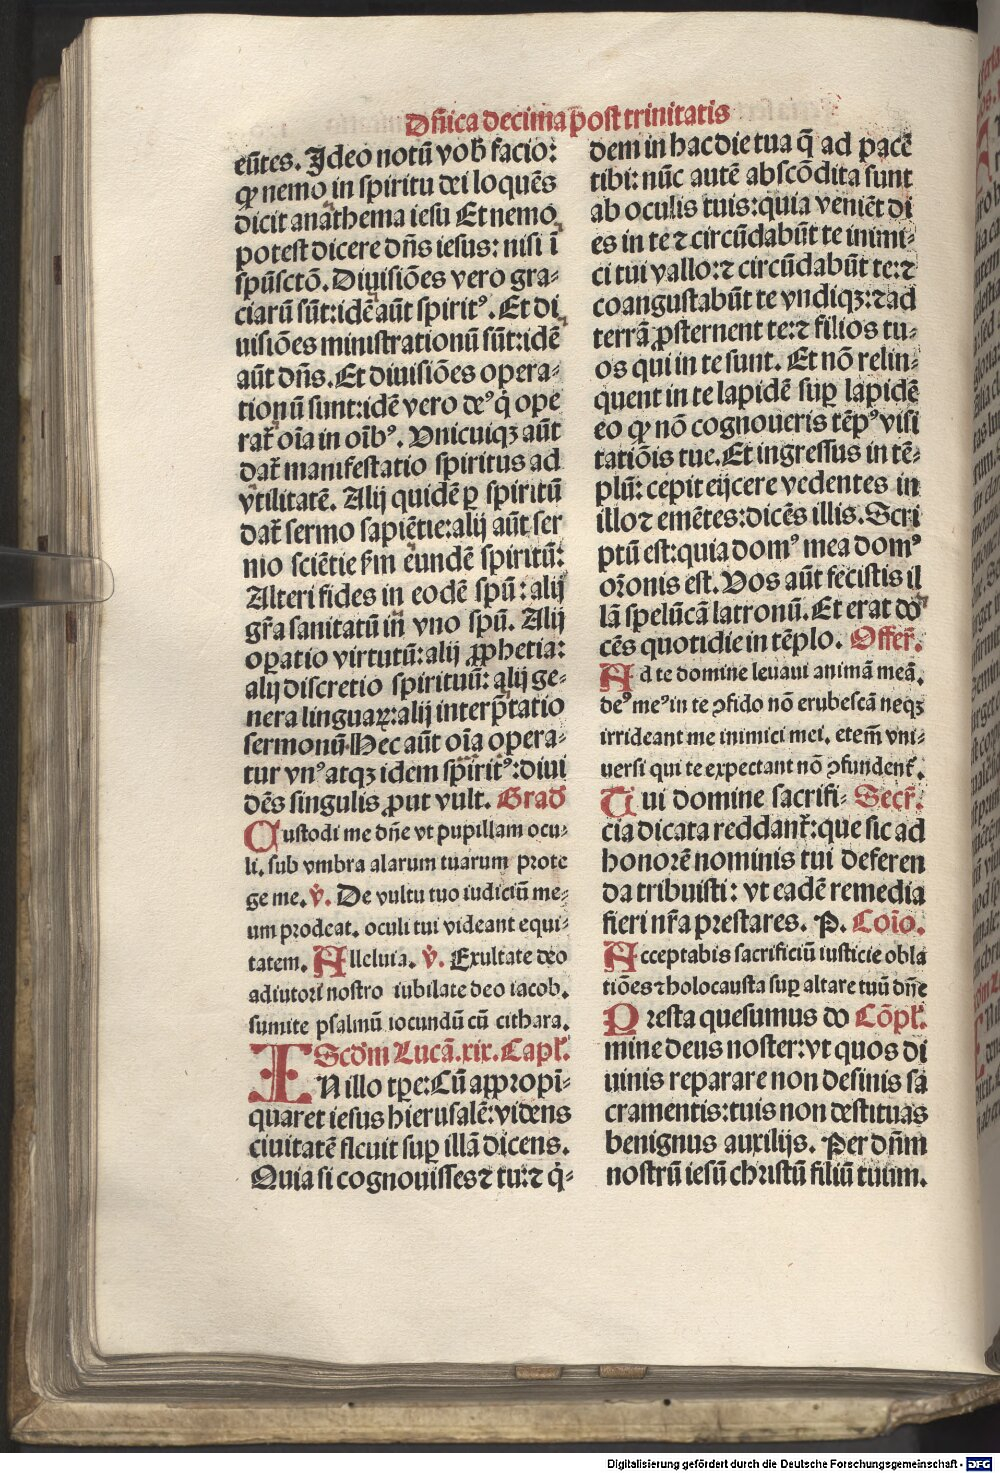 Dñica decima post trinitatis
eũtes. Ideo notũ vob̃ facio:
qꝛ nemo in spiritu dei loquẽs
dicit anathema iesu Et nemo
potest dicere dñs iesus: nisi ĩ
spũsctõ. Diuisiões vero gra-
ciarũ sũt: idẽ aũt spiritꝰ. Et di
uisiões ministrationũ sũt: idẽ
aũt dñs. Et diuisiões opera-
tionũ sunt: idẽ vero deꝰ q̇ ope
rat̃ oĩa in oĩbꝰ. Vnicuiqꝫ aũt
dat̃ manifestatio spiritus ad
vtilitatẽ. Alij quidẽ ꝑ spiritũ
dat̃ sermo sapiẽtie: alij aũt ser
mo sciẽtie ẜm eundẽ spiritũ:
Alteri fides in eodẽ spũ: alij
gr̃a sanitatũ in vno spũ. Alij
oꝑatio virtutũ: alij ꝓphetia:
alij discretio spirituũ: alij ge-
nera linguaꝝ: alij interp̃tatio
sermonũ. Hec aũt oĩa opera-
tur vnꝰ atqꝫ idem spiritꝰ: diui
dẽs singulis ꝓut vult. Grad̃
Custodi me dñe vt pupillam ocu-
li. sub vmbra alarum tuarum prote
ge me. v̇. De vultu tuo iudiciũ me-
um prodeat. oculi tui videant equi-
tatem. Alleluia. v̇. Exultate deo
adiutori nostro iubilate deo iacob.
sumite psalmũ iocundũ cũ cithara.
Scd̃m Lucã. xix. Capl̃.
IN illo tꝑe: Cũ aꝓpropĩ-
quaret iesus hierusalẽ: videns
ciuitatẽ fleuit suꝑ illã dicens.
Quia si cognouisses ⁊ tu: ⁊ q̇-
dem in hac die tua q̃ ad pacẽ
tibi: nũc autẽ abscõdita sunt
ab oculis tuis: quia veniẽt di
es in te ⁊ circũdabũt te inimi-
ci tui vallo: ⁊ circũdabũt te: ⁊
coangustabũt te vndiqꝫ: ⁊ ad
terrã ꝓsternent te: ⁊ filios tu-
os qui in te sunt. Et nõ relin-
quent in te lapidẽ suꝑ lapidẽ
eo qꝛ nõ cognoueris tẽpꝰ visi
tatiõis tue. Et ingressus in tẽ-
plũ: cepit eijcere vedentes in
illo ⁊ emẽtes: dicẽs illis. Scri
ptũ est: quia domꝰ mea domꝰ
or̃onis est. Vos aũt fecistis il
lã spelũcã latronũ. Et erat do
cẽs quotidie in tẽplo. Offer̃.
Ad te domine leuaui animã meã.
deꝰ meꝰ in te ꝯfido nõ erubescã neqꝫ
irrideant me inimici mei. etem̃ vni-
uersi qui te expectant nõ ꝯfundent̃.
Tui domine sacrifi- Secr̃.
cia dicata reddant̃: que sic ad
honorẽ nominis tui deferen
da tribuisti: vt eadẽ remedia
fieri nr̃a prestares. P. Coĩo.
Acceptabis sacrificiũ iusticie obla
tiões ⁊ holocausta suꝑ altare tuũ dñe
Presta quesumus do Cõpl̃.
mine deus noster: vt quos di
uinis reparare non desinis sa
cramentis: tuis non destituas
benignus auxilijs. Per dñm
nostrũ iesũ christũ filiũ tuum.
Digitalisierung gefördert durch die Deutsche Forschungsgemeinschaft - DFG